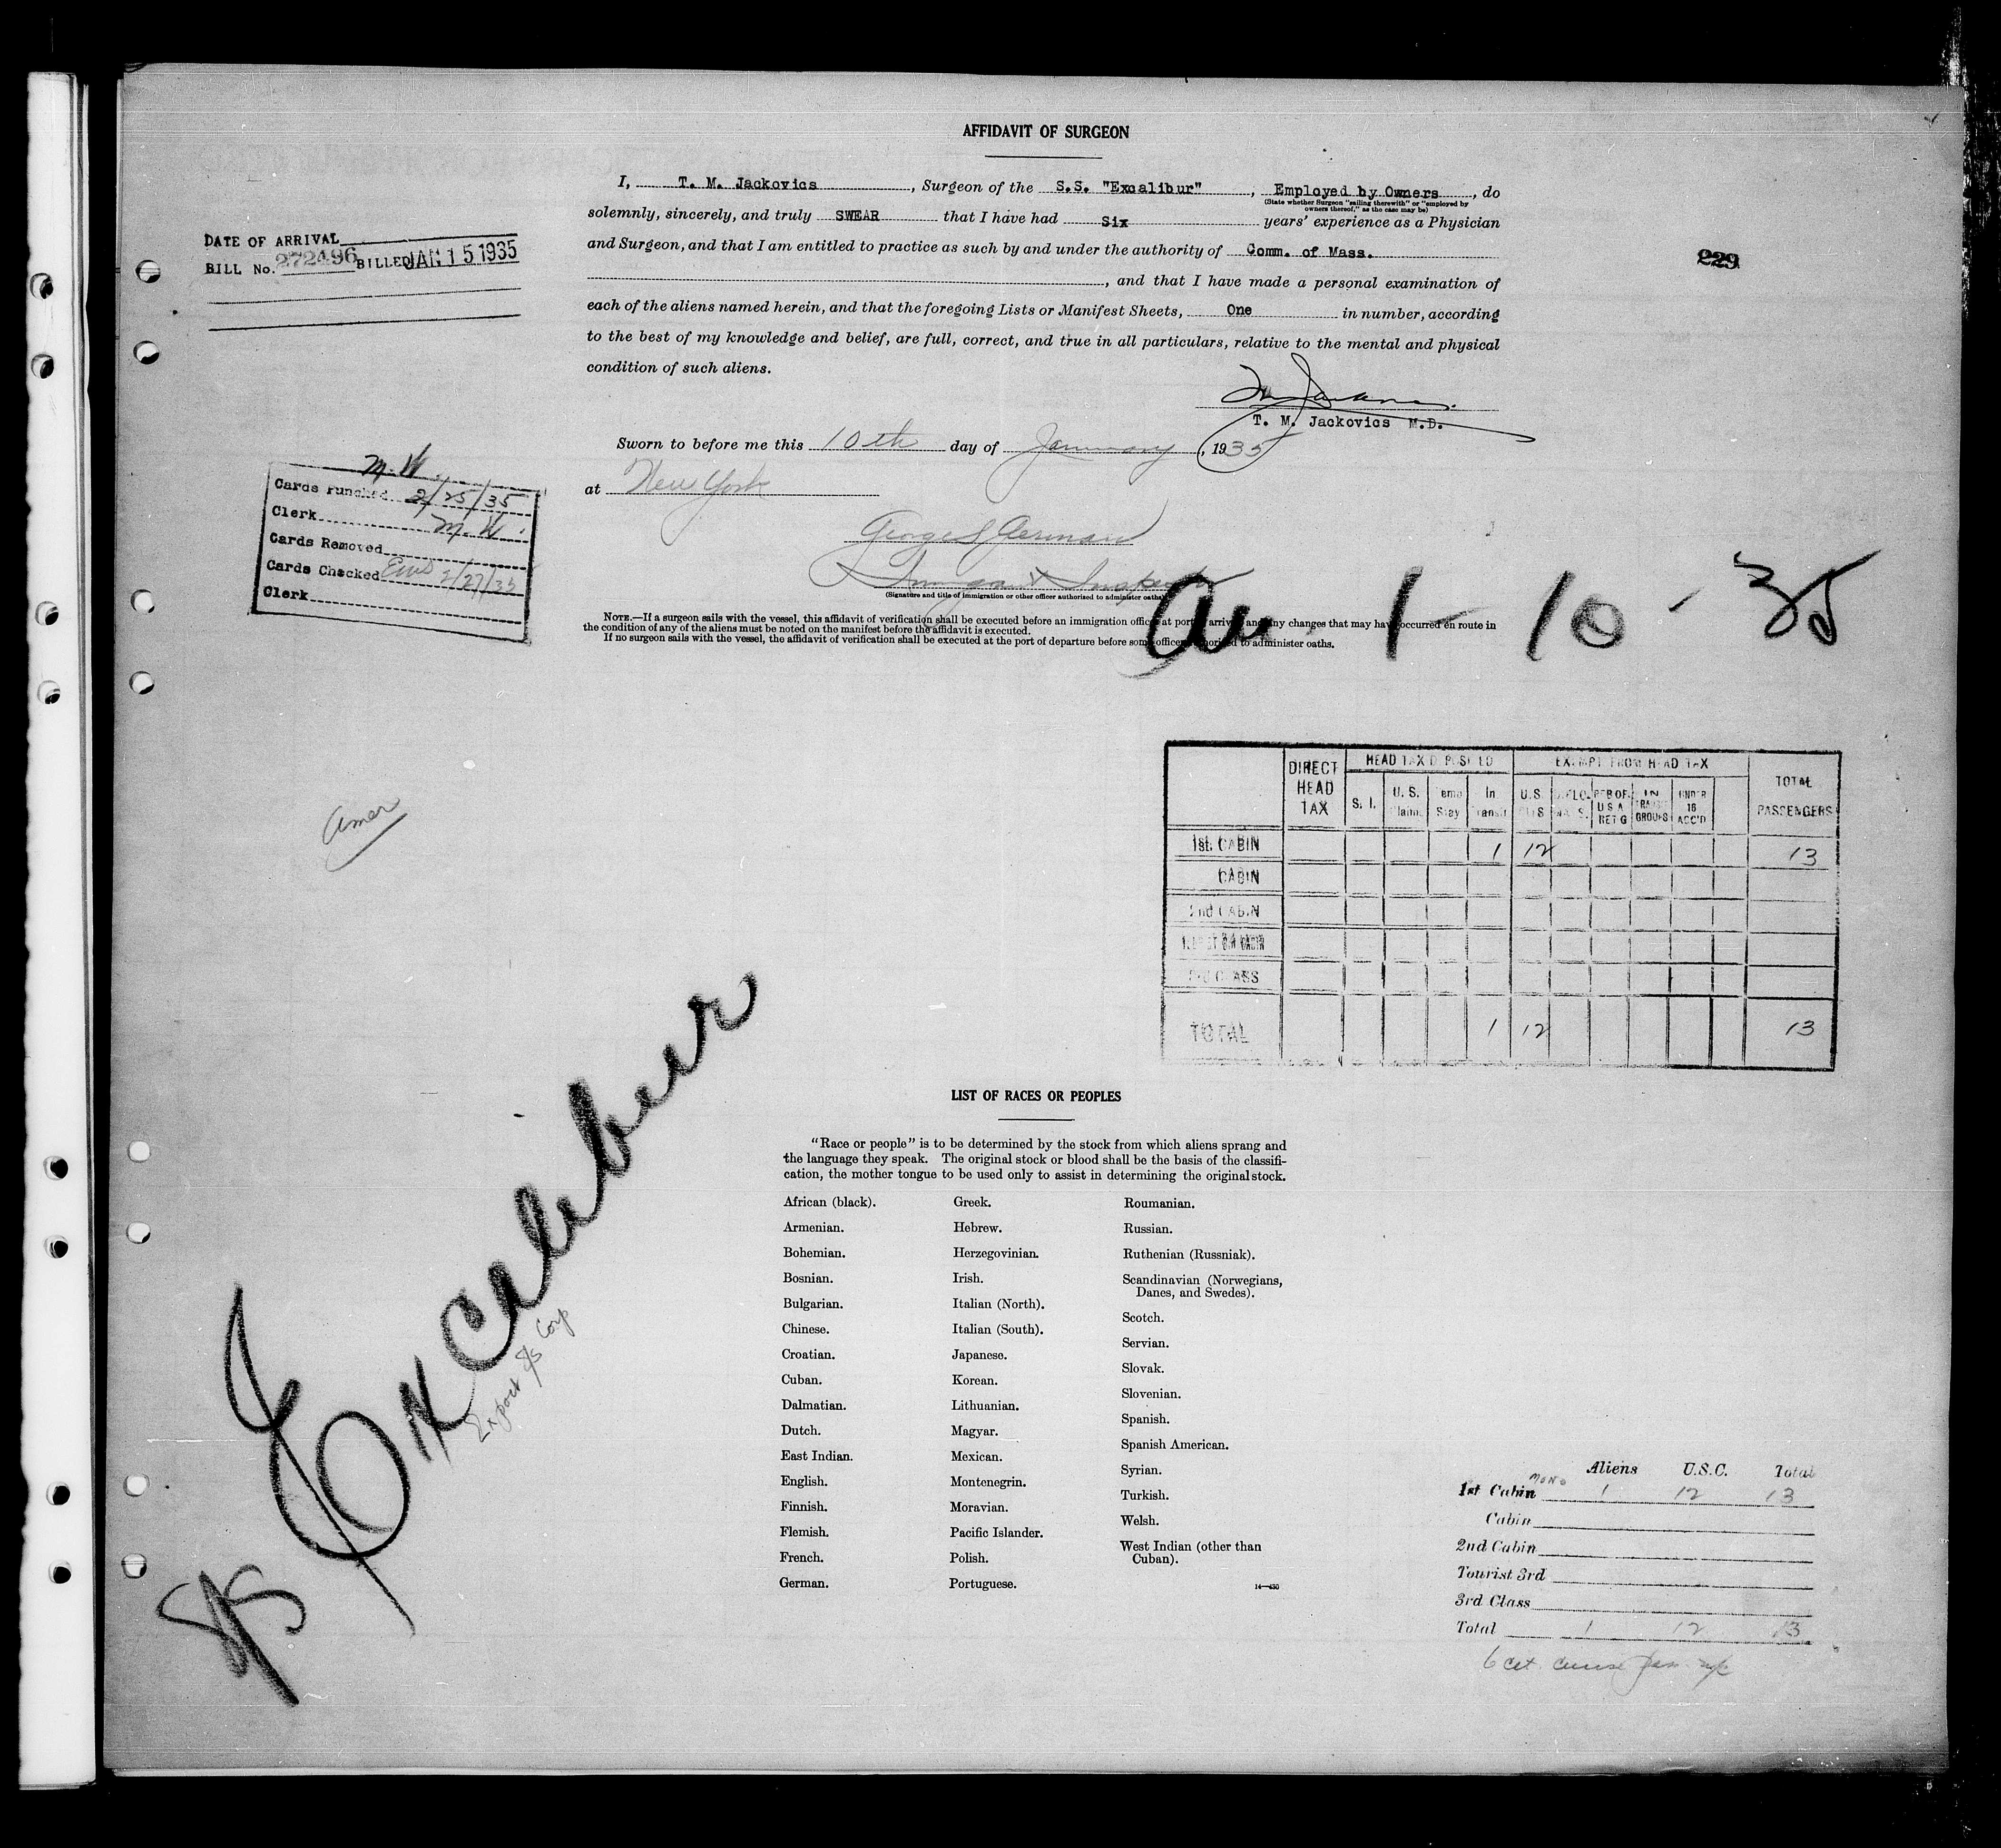 AFFIDAVIT OF SURGEON
I, T. M. Jackovics, Surgeon of the S.S. "Excalibur", Employed by Owners, do
(State whether Surgeon "sailing therewith" or "employed by
owners thereof," as the case may be)
solemnly, sincerely, and truly SWEAR that I have had Six years' experience as a Physician
and Surgeon, and that I am entitled to practice as such by and under the authority of Comm. of Mass.
, and that I have made a personal examination of
each of the aliens named herein, and that the foregoing Lists or Manifest Sheets, One in number, according
to the best of my knowledge and belief, are full, correct, and true in all particulars, relative to the mental and physical
condition of such aliens.
T. M. Jackovics M.D.
Sworn to before me this 10th day of January, 1935
at New York
Immigrant Inspector
(Signature and title of immigration or other officer authorized to administer oaths)
NOTE.—If a surgeon sails with the vessel, this affidavit of verification shall be executed before an immigration officer at port arrival and any changes that may have occurred en route in
the condition of any of the aliens must be noted on the manifest before the affidavit is executed.
If no surgeon sails with the vessel, the affidavit of verification shall be executed at the port of departure before some officer authorized to administer oaths.
DATE OF ARRIVAL
BILL No. 272496 BILLED JAN 15 1935
229
M. W.
Cards Punched 2/25/35
Clerk M. W.
Cards Removed
Cards Checked 2/27/35
Clerk
1-10-35
Amer
DIRECT HEAD TAX
HEAD TAX DEPOSITED
EXEMPT FROM HEAD TAX
TOTAL PASSENGERS
S. I.
U. S. Claim
Temp Stay
In Transit
U.S. CITS
REB OF U S A RET G
IN TRANSIT GROUPS
UNDER 16 ACC'D
1st. CABIN 1 12 13
CABIN
2nd CABIN
3rd CLASS
TOTAL 1 12 13
S/S Excalibur
Export S/S Corp
LIST OF RACES OR PEOPLES
"Race or people" is to be determined by the stock from which aliens sprang and
the language they speak. The original stock or blood shall be the basis of the classifi-
cation, the mother tongue to be used only to assist in determining the original stock.
African (black).
Armenian.
Bohemian.
Bosnian.
Bulgarian.
Chinese.
Croatian.
Cuban.
Dalmatian.
Dutch.
East Indian.
English.
Finnish.
Flemish.
French.
German.
Greek.
Hebrew.
Herzegovinian.
Irish.
Italian (North).
Italian (South).
Japanese.
Korean.
Lithuanian.
Magyar.
Mexican.
Montenegrin.
Moravian.
Pacific Islander.
Polish.
Portuguese.
Roumanian.
Russian.
Ruthenian (Russniak).
Scandinavian (Norwegians,
Danes, and Swedes).
Scotch.
Servian.
Slovak.
Slovenian.
Spanish.
Spanish American.
Syrian.
Turkish.
Welsh.
West Indian (other than
Cuban).
14—430
Aliens U.S.C. Total
1st Cabin 1 12 13
Cabin
2nd Cabin
Tourist 3rd
3rd Class
Total 1 12 13